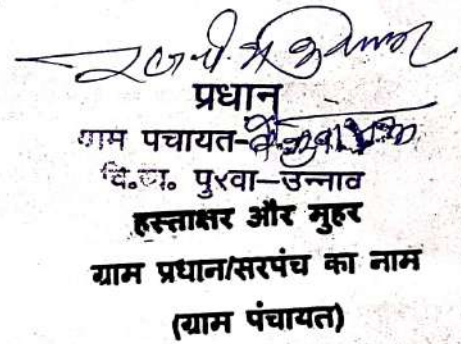 प्रधान
ग्राम पचायत-
वि.ख. पुरवा-उन्नाव
हस्ताक्षर और मुहर
ग्राम प्रधान/सरपंच का नाम
(ग्राम पंचायत)